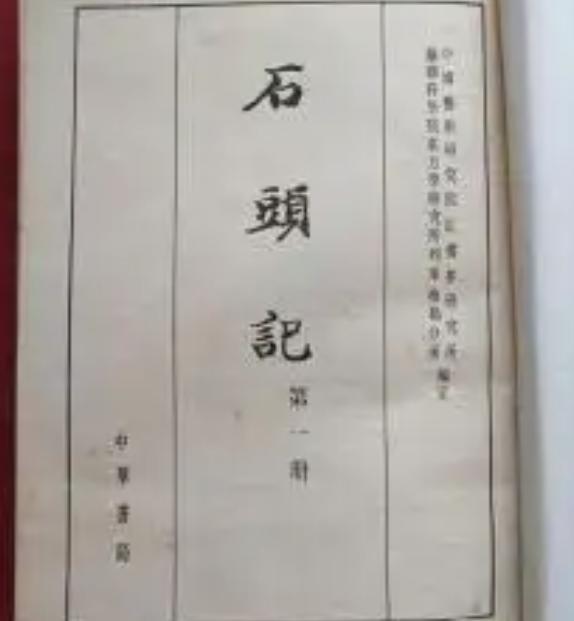 中國藝術研究院紅樓夢研究所
蘇聯科學院東方學研究所列寧格勒分所 編定
石頭記
第一册
中華書局